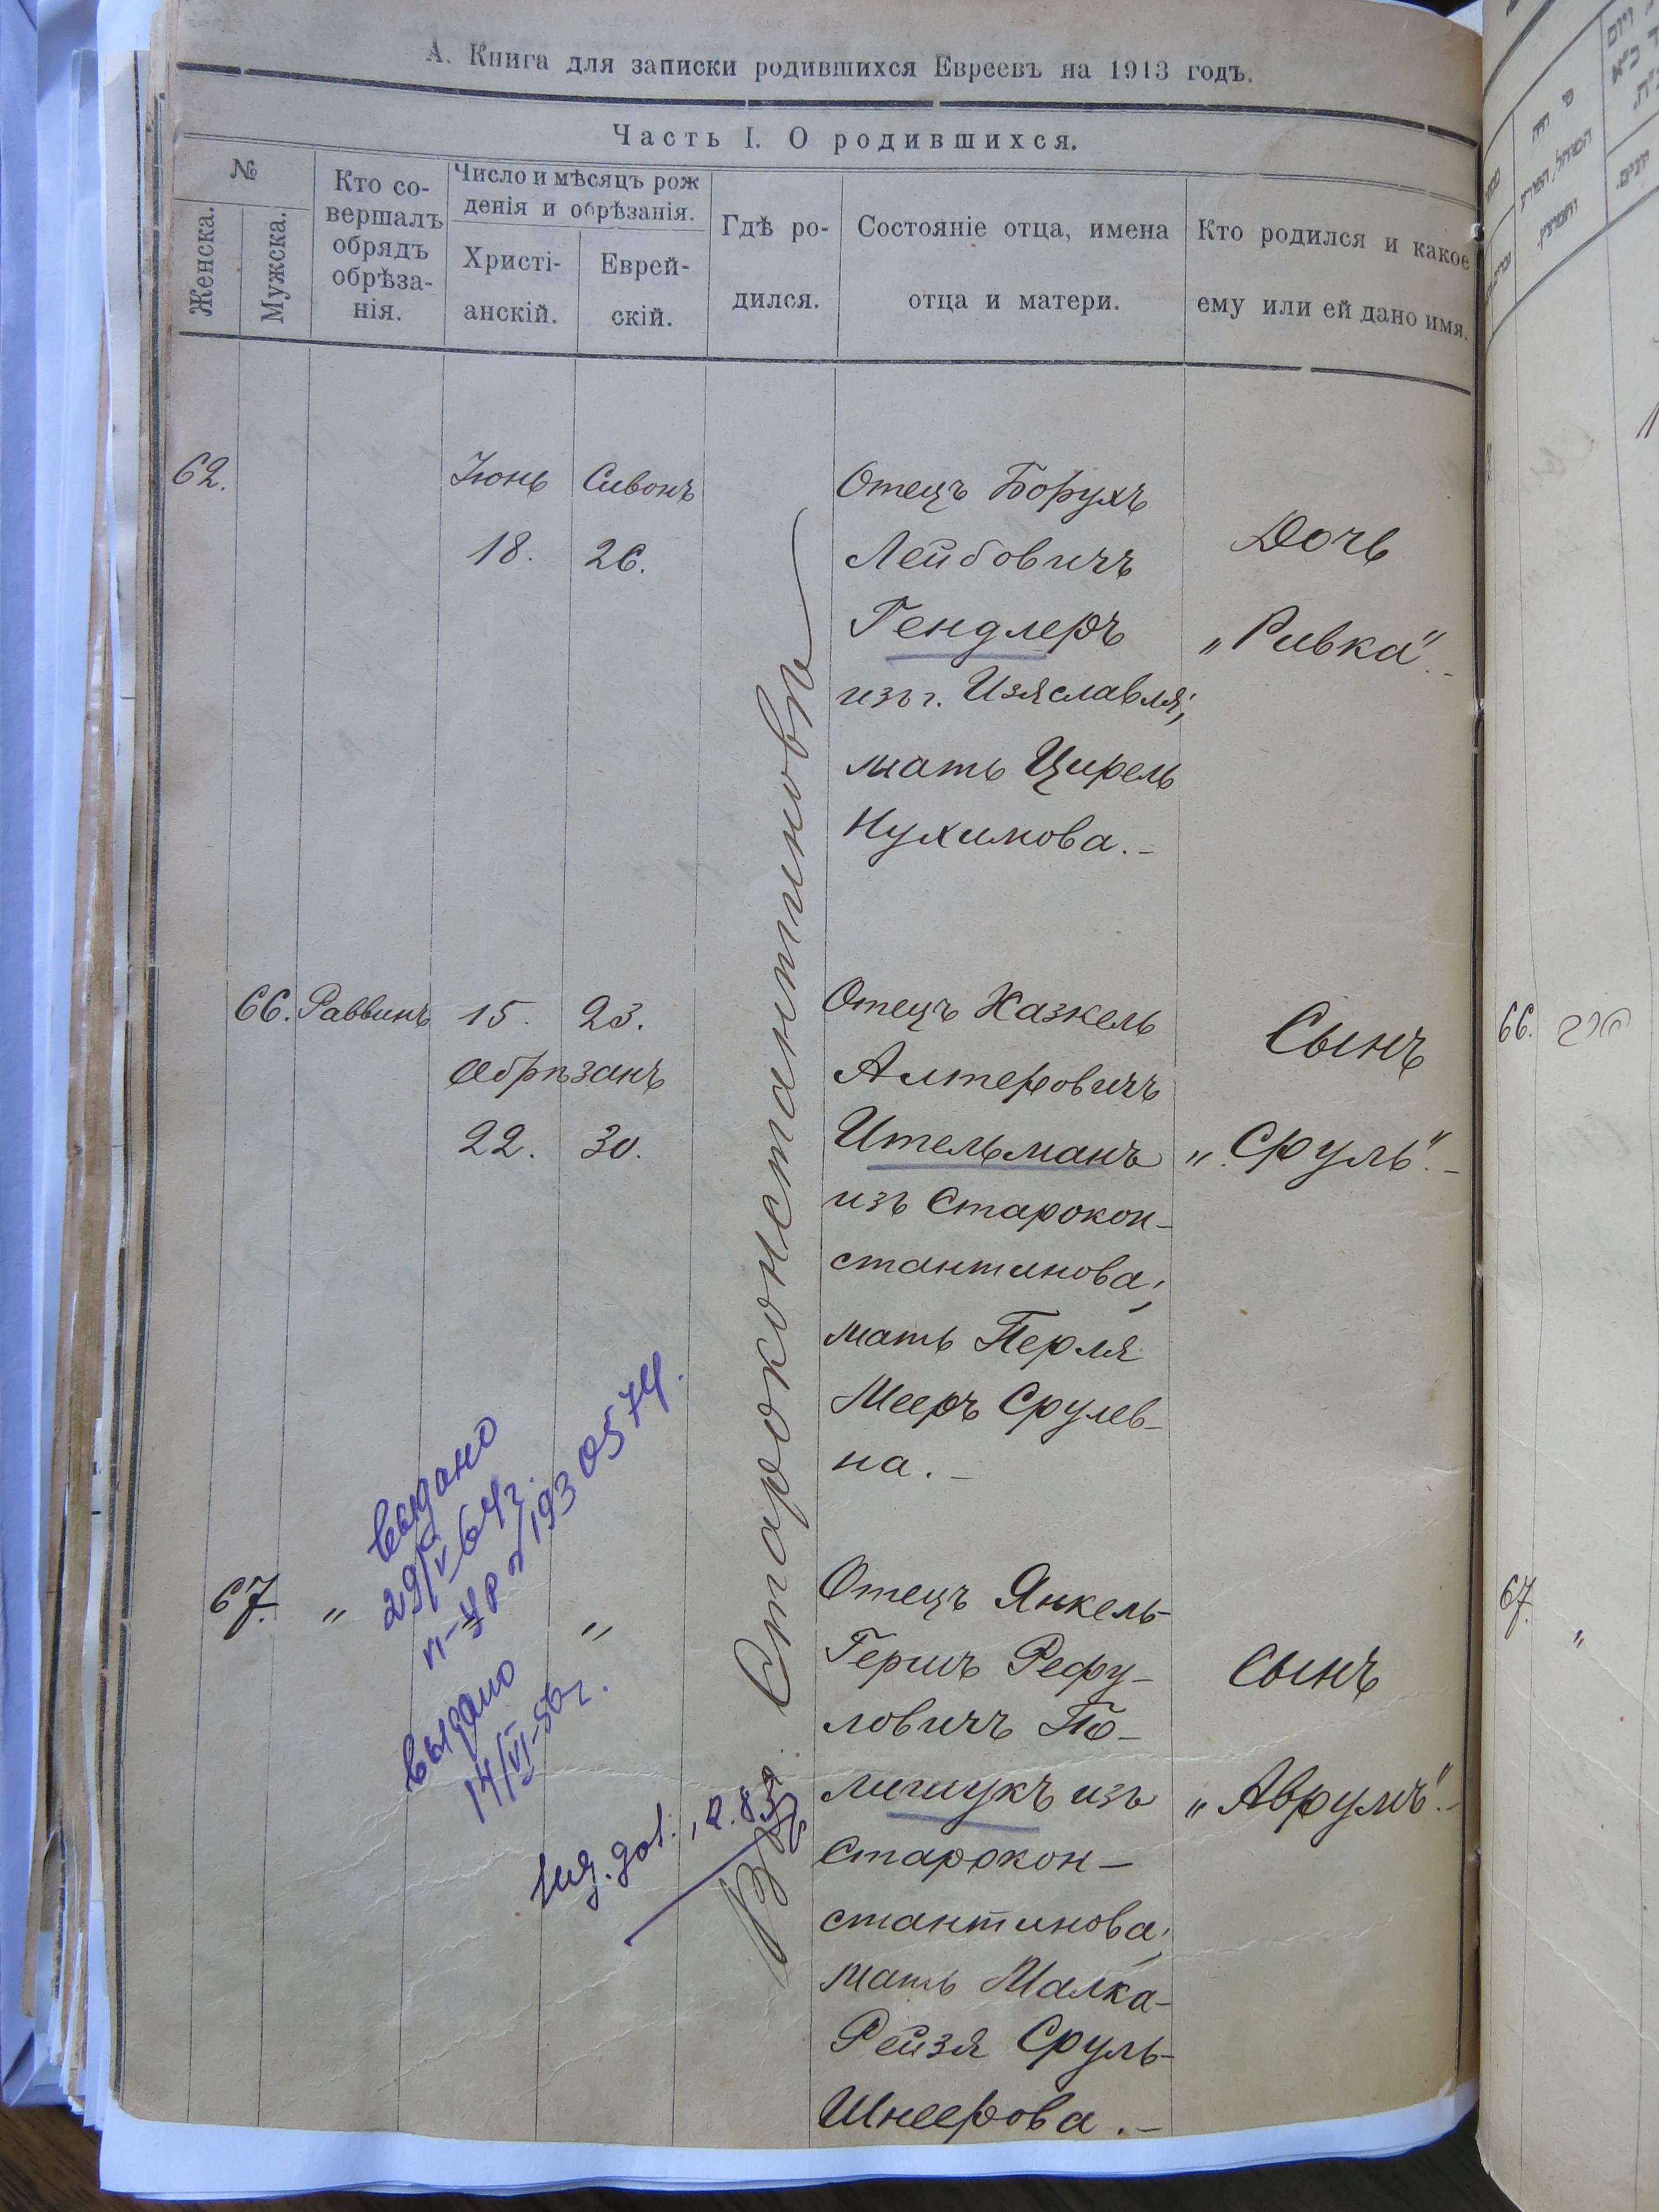 А. Книга для записки родившихся Евреевъ на 1913 годъ.
Часть I. О родившихся.
№
Женска.
Мужска.
Кто со-
вершалъ
обрядъ
обрѣза-
нія.
Число и мѣсяцъ рож
денія и обрѣзанія.
Христі-
анскій.
Еврей-
скій.
Гдѣ ро-
дился.
Состояніе отца, имена
отца и матери.
Кто родился и какое
ему или ей дано имя.
62.
Іюнь Сивонъ
18. 26.
Отецъ Борухъ
Лейбовичъ
Гендлеръ
изъ г. Изяславля;
мать Цирель
Нухимова.-
Дочь
„Ривка".-
Въ Староконстантиновѣ
66. Раввинъ 15. 23.
обрѣзанъ
22. 30.
Отецъ Хазкель
Алтеровичъ
Ительманъ
изъ Старокон-
стантинова;
мать Перля
Мееръ Срулев-
на.-
Сынъ
„Сруль".-
67. " "
Отецъ Янкель-
Гершъ Рефу-
ловичъ По-
лищукъ изъ
Старокон-
стантинова;
мать Малка-
Рейзя Сруль-
Шнеерова.-
Сынъ
„Аврумъ".-
выдано
29/V-64г.
193 0574.
выдано
14/VI-56г.
66.
67.
"